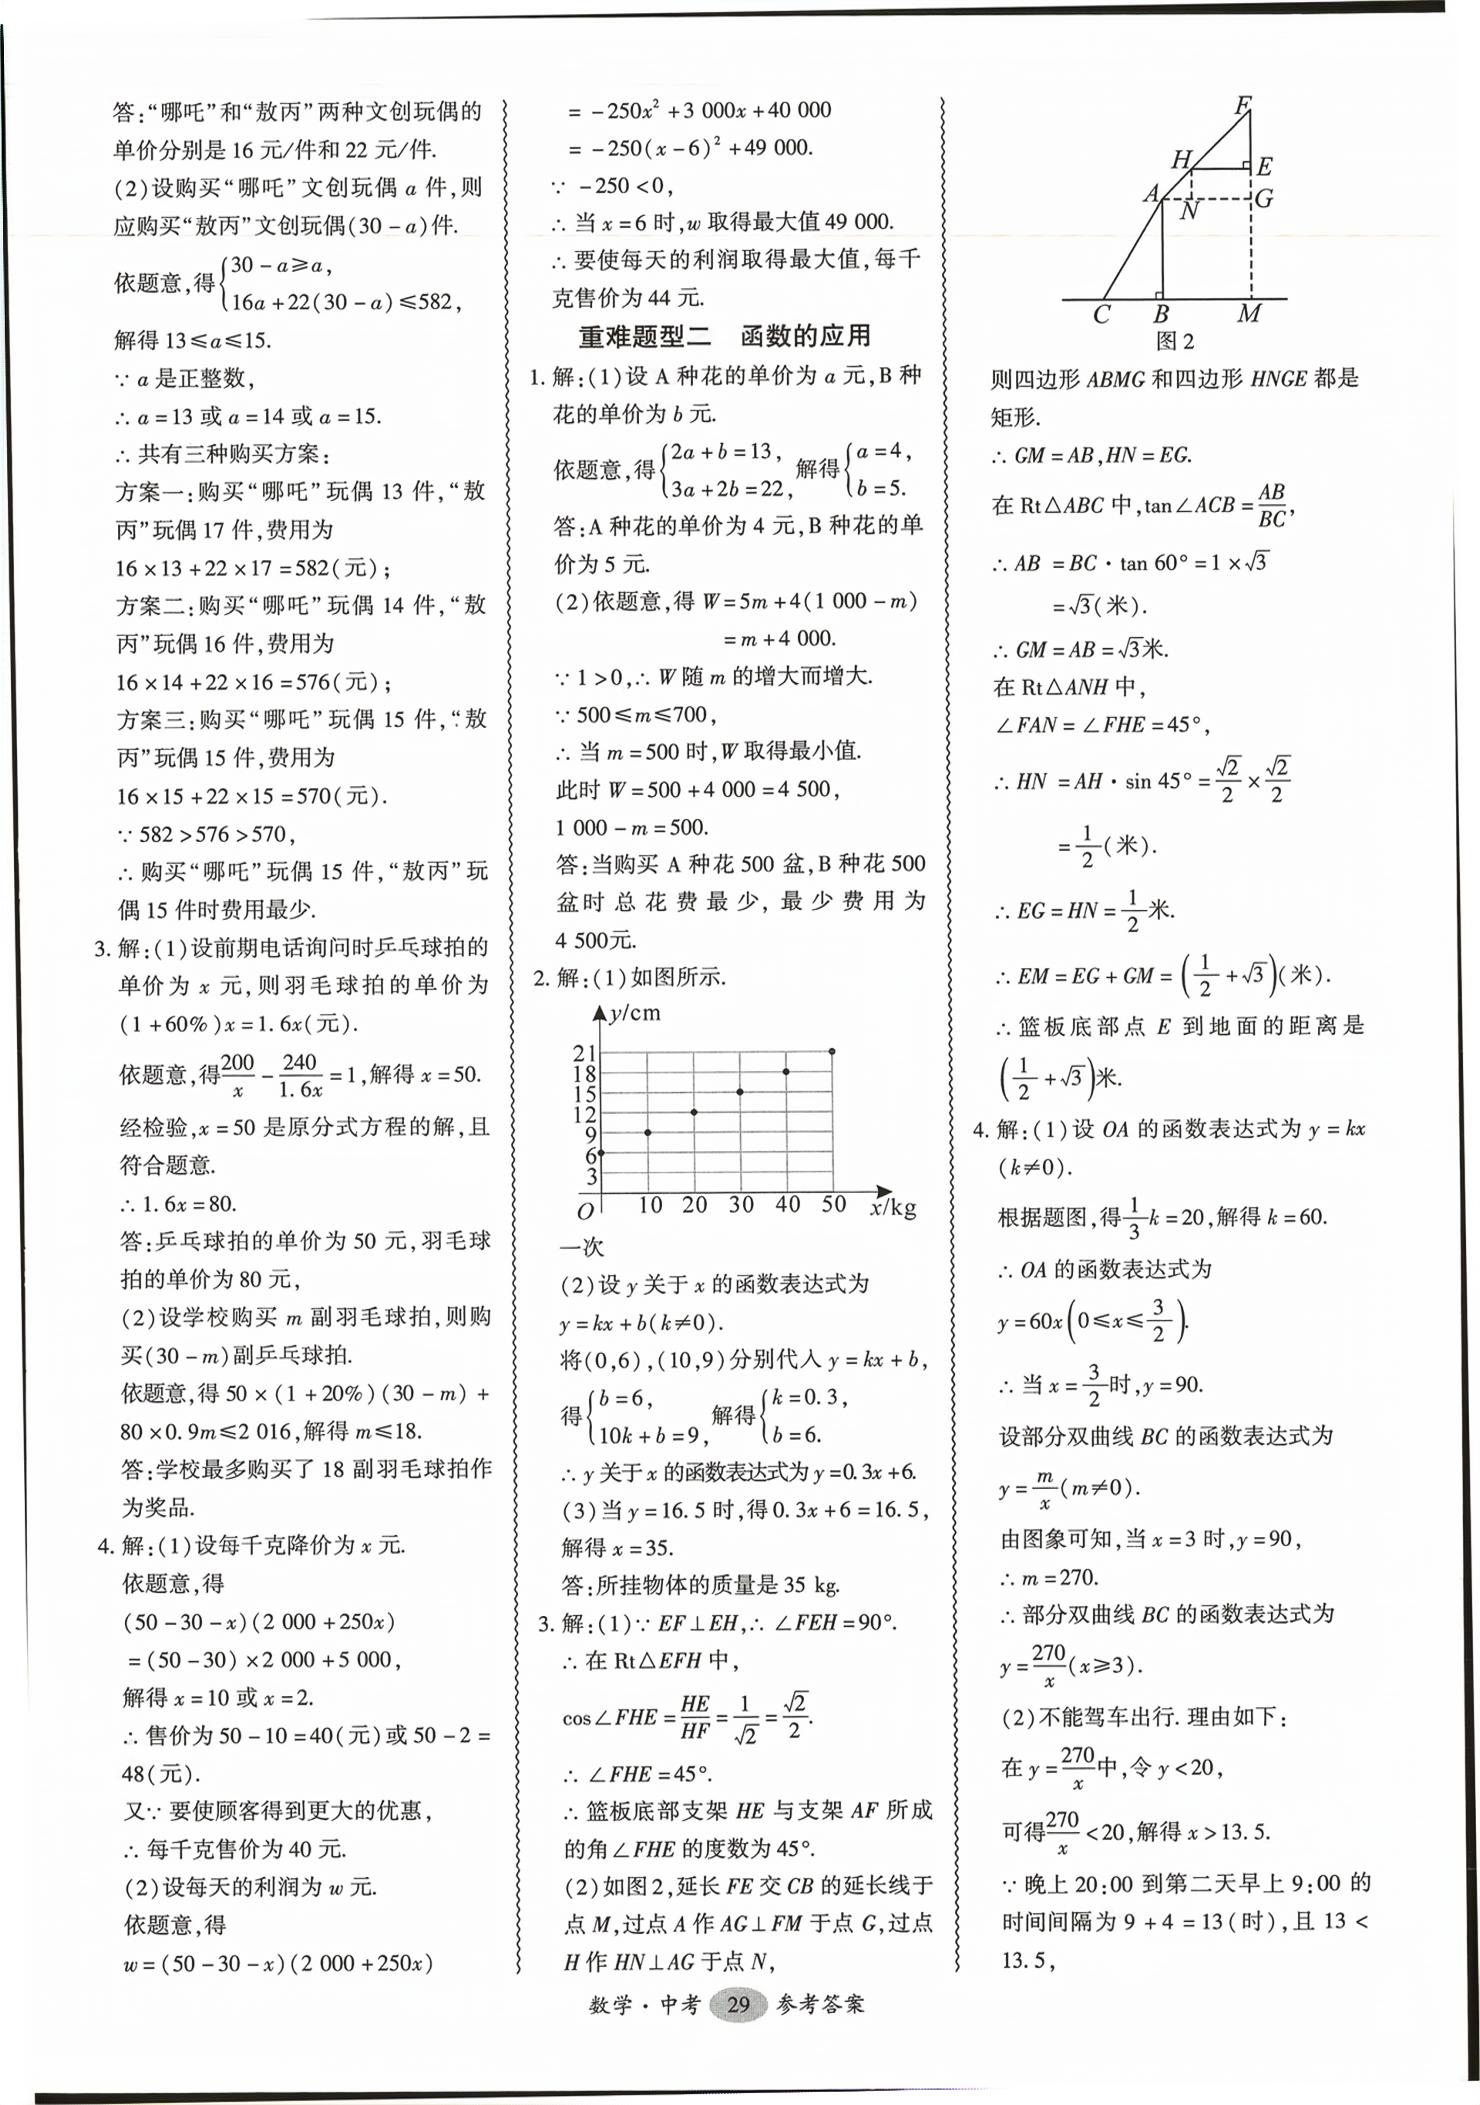 答:“哪吒”和“敖丙”两种文创玩偶的
单价分别是 16 元/件和 22 元/件.
(2)设购买“哪吒”文创玩偶 a 件,则
应购买“敖丙”文创玩偶(30 - a)件.
依题意,得{30 - a≥a,
16a + 22(30 - a)≤582,
解得 13≤a≤15.
∵ a 是正整数,
∴ a = 13 或 a = 14 或 a = 15.
∴ 共有三种购买方案:
方案一:购买“哪吒”玩偶 13 件,“敖
丙”玩偶 17 件,费用为
16 × 13 + 22 × 17 = 582(元);
方案二:购买“哪吒”玩偶 14 件,“敖
丙”玩偶 16 件,费用为
16 × 14 + 22 × 16 = 576(元);
方案三:购买“哪吒”玩偶 15 件,“敖
丙”玩偶 15 件,费用为
16 × 15 + 22 × 15 = 570(元).
∵ 582 > 576 > 570,
∴ 购买“哪吒”玩偶 15 件,“敖丙”玩
偶 15 件时费用最少.
3. 解:(1)设前期电话询问时乒乓球拍的
单价为 x 元,则羽毛球拍的单价为
(1 + 60%)x = 1.6x(元).
依题意,得200/x - 240/1.6x = 1,解得 x = 50.
经检验,x = 50 是原分式方程的解,且
符合题意.
∴ 1.6x = 80.
答:乒乓球拍的单价为 50 元,羽毛球
拍的单价为 80 元,
(2)设学校购买 m 副羽毛球拍,则购
买(30 - m)副乒乓球拍.
依题意,得 50 × (1 + 20%)(30 - m) +
80 × 0.9m≤2 016,解得 m≤18.
答:学校最多购买了 18 副羽毛球拍作
为奖品.
4. 解:(1)设每千克降价为 x 元.
依题意,得
(50 - 30 - x)(2 000 + 250x)
= (50 - 30) × 2 000 + 5 000,
解得 x = 10 或 x = 2.
∴ 售价为 50 - 10 = 40(元)或 50 - 2 =
48(元).
又∵ 要使顾客得到更大的优惠,
∴ 每千克售价为 40 元.
(2)设每天的利润为 w 元.
依题意,得
w = (50 - 30 - x)(2 000 + 250x)
= -250x² + 3 000x + 40 000
= -250(x - 6)² + 49 000.
∵ -250 < 0,
∴ 当 x = 6 时,w 取得最大值 49 000.
∴ 要使每天的利润取得最大值,每千
克售价为 44 元.
重难题型二 函数的应用
1. 解:(1)设 A 种花的单价为 a 元,B 种
花的单价为 b 元.
依题意,得{2a + b = 13, 3a + 2b = 22, 解得{a = 4, b = 5.
答:A 种花的单价为 4 元,B 种花的单
价为 5 元.
(2)依题意,得 W = 5m + 4(1 000 - m)
= m + 4 000.
∵ 1 > 0,∴ W 随 m 的增大而增大.
∵ 500≤m≤700,
∴ 当 m = 500 时,W 取得最小值.
此时 W = 500 + 4 000 = 4 500,
1 000 - m = 500.
答:当购买 A 种花 500 盆,B 种花 500
盆时总花费最少,最少费用为
4 500元.
2. 解:(1)如图所示.
y/cm
21
18
15
12
9
6
3
O 10 20 30 40 50 x/kg
一次
(2)设 y 关于 x 的函数表达式为
y = kx + b(k≠0).
将(0,6),(10,9)分别代入 y = kx + b,
得{b = 6, 10k + b = 9, 解得{k = 0.3, b = 6.
∴ y 关于 x 的函数表达式为 y = 0.3x + 6.
(3)当 y = 16.5 时,得 0.3x + 6 = 16.5,
解得 x = 35.
答:所挂物体的质量是 35 kg.
3. 解:(1)∵ EF⊥EH,∴ ∠FEH = 90°.
∴ 在 Rt△EFH 中,
cos∠FHE = HE/HF = 1/√2 = √2/2.
∴ ∠FHE = 45°.
∴ 篮板底部支架 HE 与支架 AF 所成
的角∠FHE 的度数为 45°.
(2)如图2,延长 FE 交 CB 的延长线于
点 M,过点 A 作 AG⊥FM 于点 G,过点
H 作 HN⊥AG 于点 N,
F
H E
A N G
C B M
图 2
则四边形 ABMG 和四边形 HNGE 都是
矩形.
∴ GM = AB,HN = EG.
在 Rt△ABC 中,tan∠ACB = AB/BC,
∴ AB = BC · tan 60° = 1 × √3
= √3(米).
∴ GM = AB = √3米.
在 Rt△ANH 中,
∠FAN = ∠FHE = 45°,
∴ HN = AH · sin 45° = √2/2 × √2/2
= 1/2(米).
∴ EG = HN = 1/2米.
∴ EM = EG + GM = (1/2 + √3)(米).
∴ 篮板底部点 E 到地面的距离是
(1/2 + √3)米.
4. 解:(1)设 OA 的函数表达式为 y = kx
(k≠0).
根据题图,得1/3k = 20,解得 k = 60.
∴ OA 的函数表达式为
y = 60x(0≤x≤3/2).
∴ 当 x = 3/2时,y = 90.
设部分双曲线 BC 的函数表达式为
y = m/x(m≠0).
由图象可知,当 x = 3 时,y = 90,
∴ m = 270.
∴ 部分双曲线 BC 的函数表达式为
y = 270/x(x≥3).
(2)不能驾车出行. 理由如下:
在 y = 270/x中,令 y < 20,
可得270/x < 20,解得 x > 13.5.
∵ 晚上 20:00 到第二天早上 9:00 的
时间间隔为 9 + 4 = 13(时),且 13 <
13.5,
数学 · 中考 29 参考答案